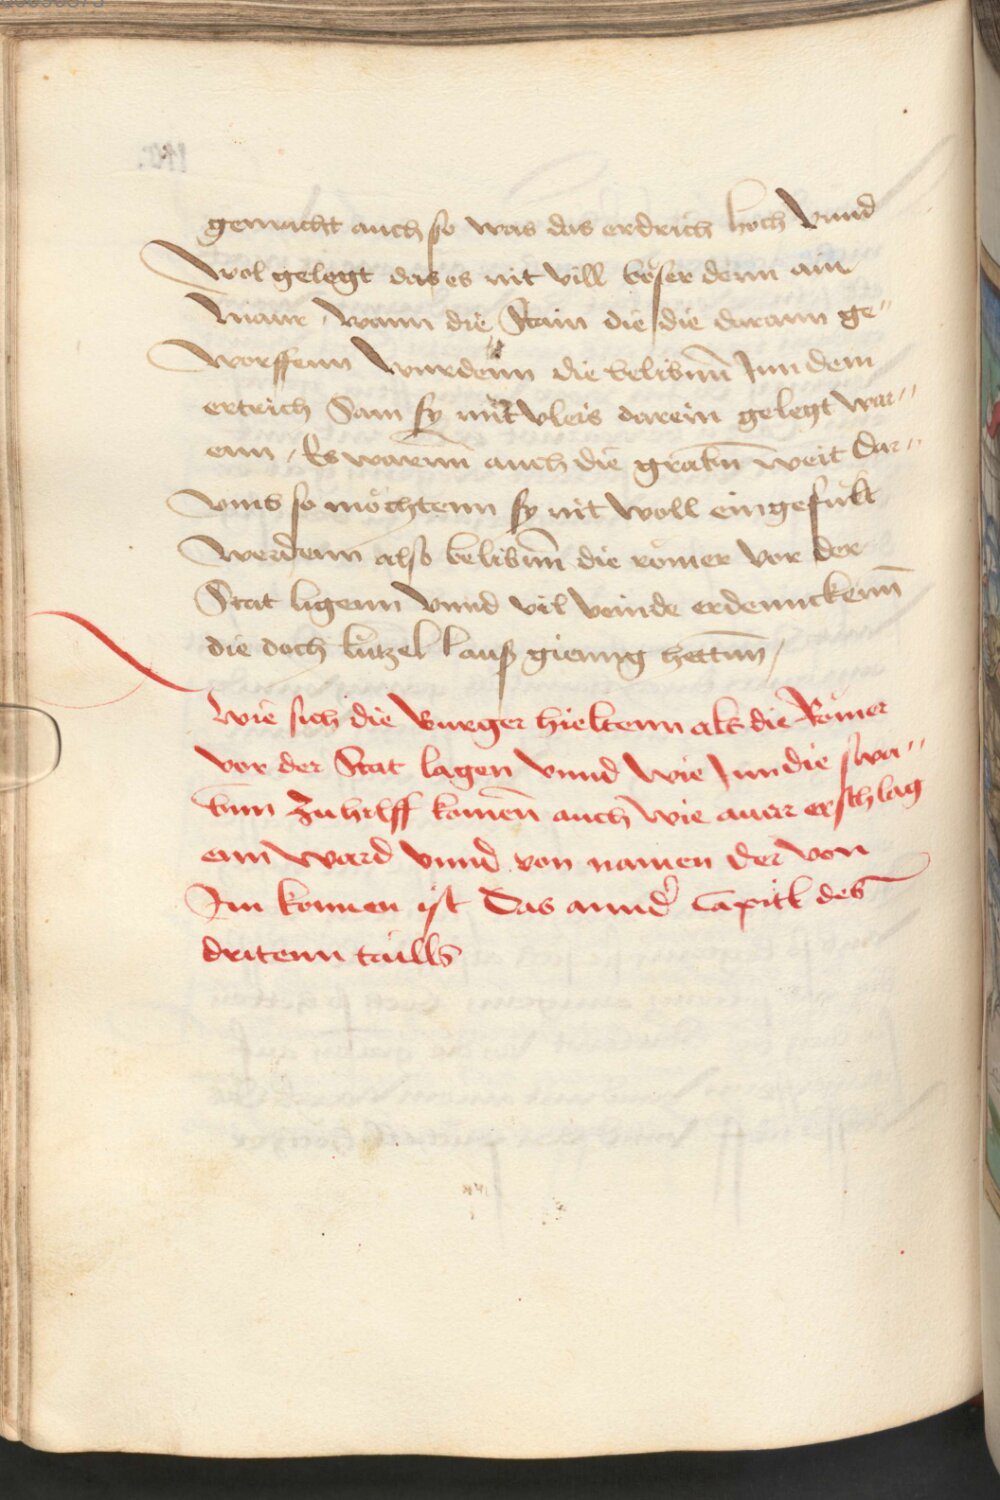 gemacht auch so was das erdrich hoch vnnd
wol gelegt das es nit vill beser denn ain
maur / wann die Stain die die darann ge"
worffenn wurdenn die belibnn Inn dem
ertrich Sam sy mit vleis darein gelegt war"
enn / Es warnn auch die grabn weit dar"
vmb so möchtenn sy nit woll eingefült
werdenn also belibnn die römer vor der
Stat ligenn vnnd vil veinde erdennckenn
die doch lützel gienng hettnn /
Wie sich die Burger hieltenn als die Römer
vor der Stat lagen vnnd wie Inn die swa"
bnn zu hilff komen auch wie auer erschlag
enn ward vnnd von namen der von
Im komen ist Das annder Capitl des
dritenn taills